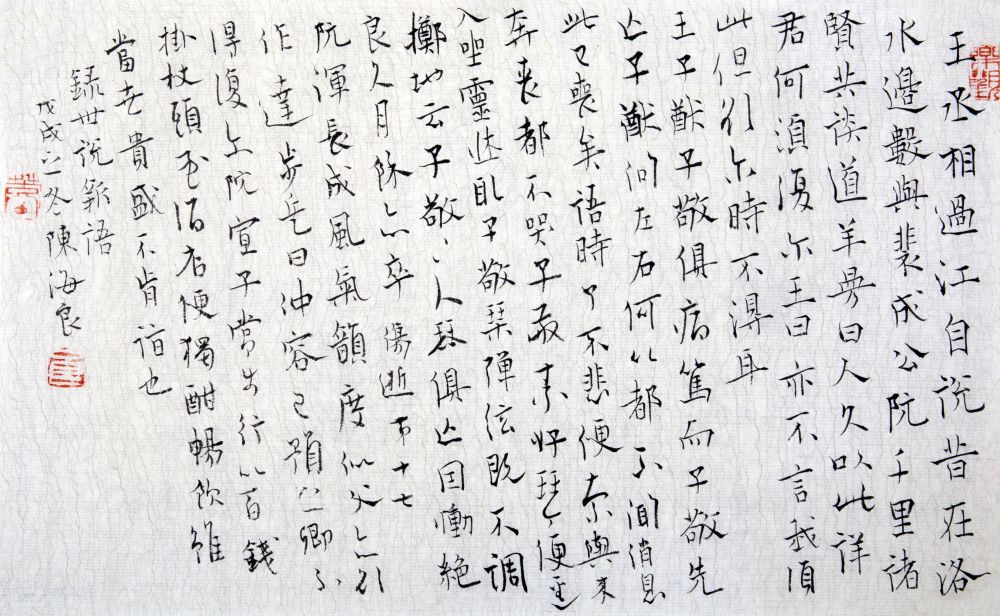 王丞相過江自說昔在洛
水邊數與裴成公阮千里諸
賢共談道羊曼曰人久以此詳
君何須復尔王曰亦不言我須
此但引尔時不得耳
王子猷子敬俱病篤而子敬先
亡子猷问左右何以都不聞消息
此已喪矣語時了不悲便索輿来
奔喪都不哭子敬素好琴便徑
入坐靈牀取子敬琴弹弦既不調
擲地云子敬〻〻人琴俱亡因慟絕
良久月餘亦卒 傷逝第十七
阮渾長成風氣韻度似父亦欲
作達步兵曰仲容已預之卿不
得復尔阮宣子常步行以百錢
掛杖頭至酒店便獨酣暢飲雖
當世貴盛不肯詣也
録世說新語
戊戌之冬陳海良